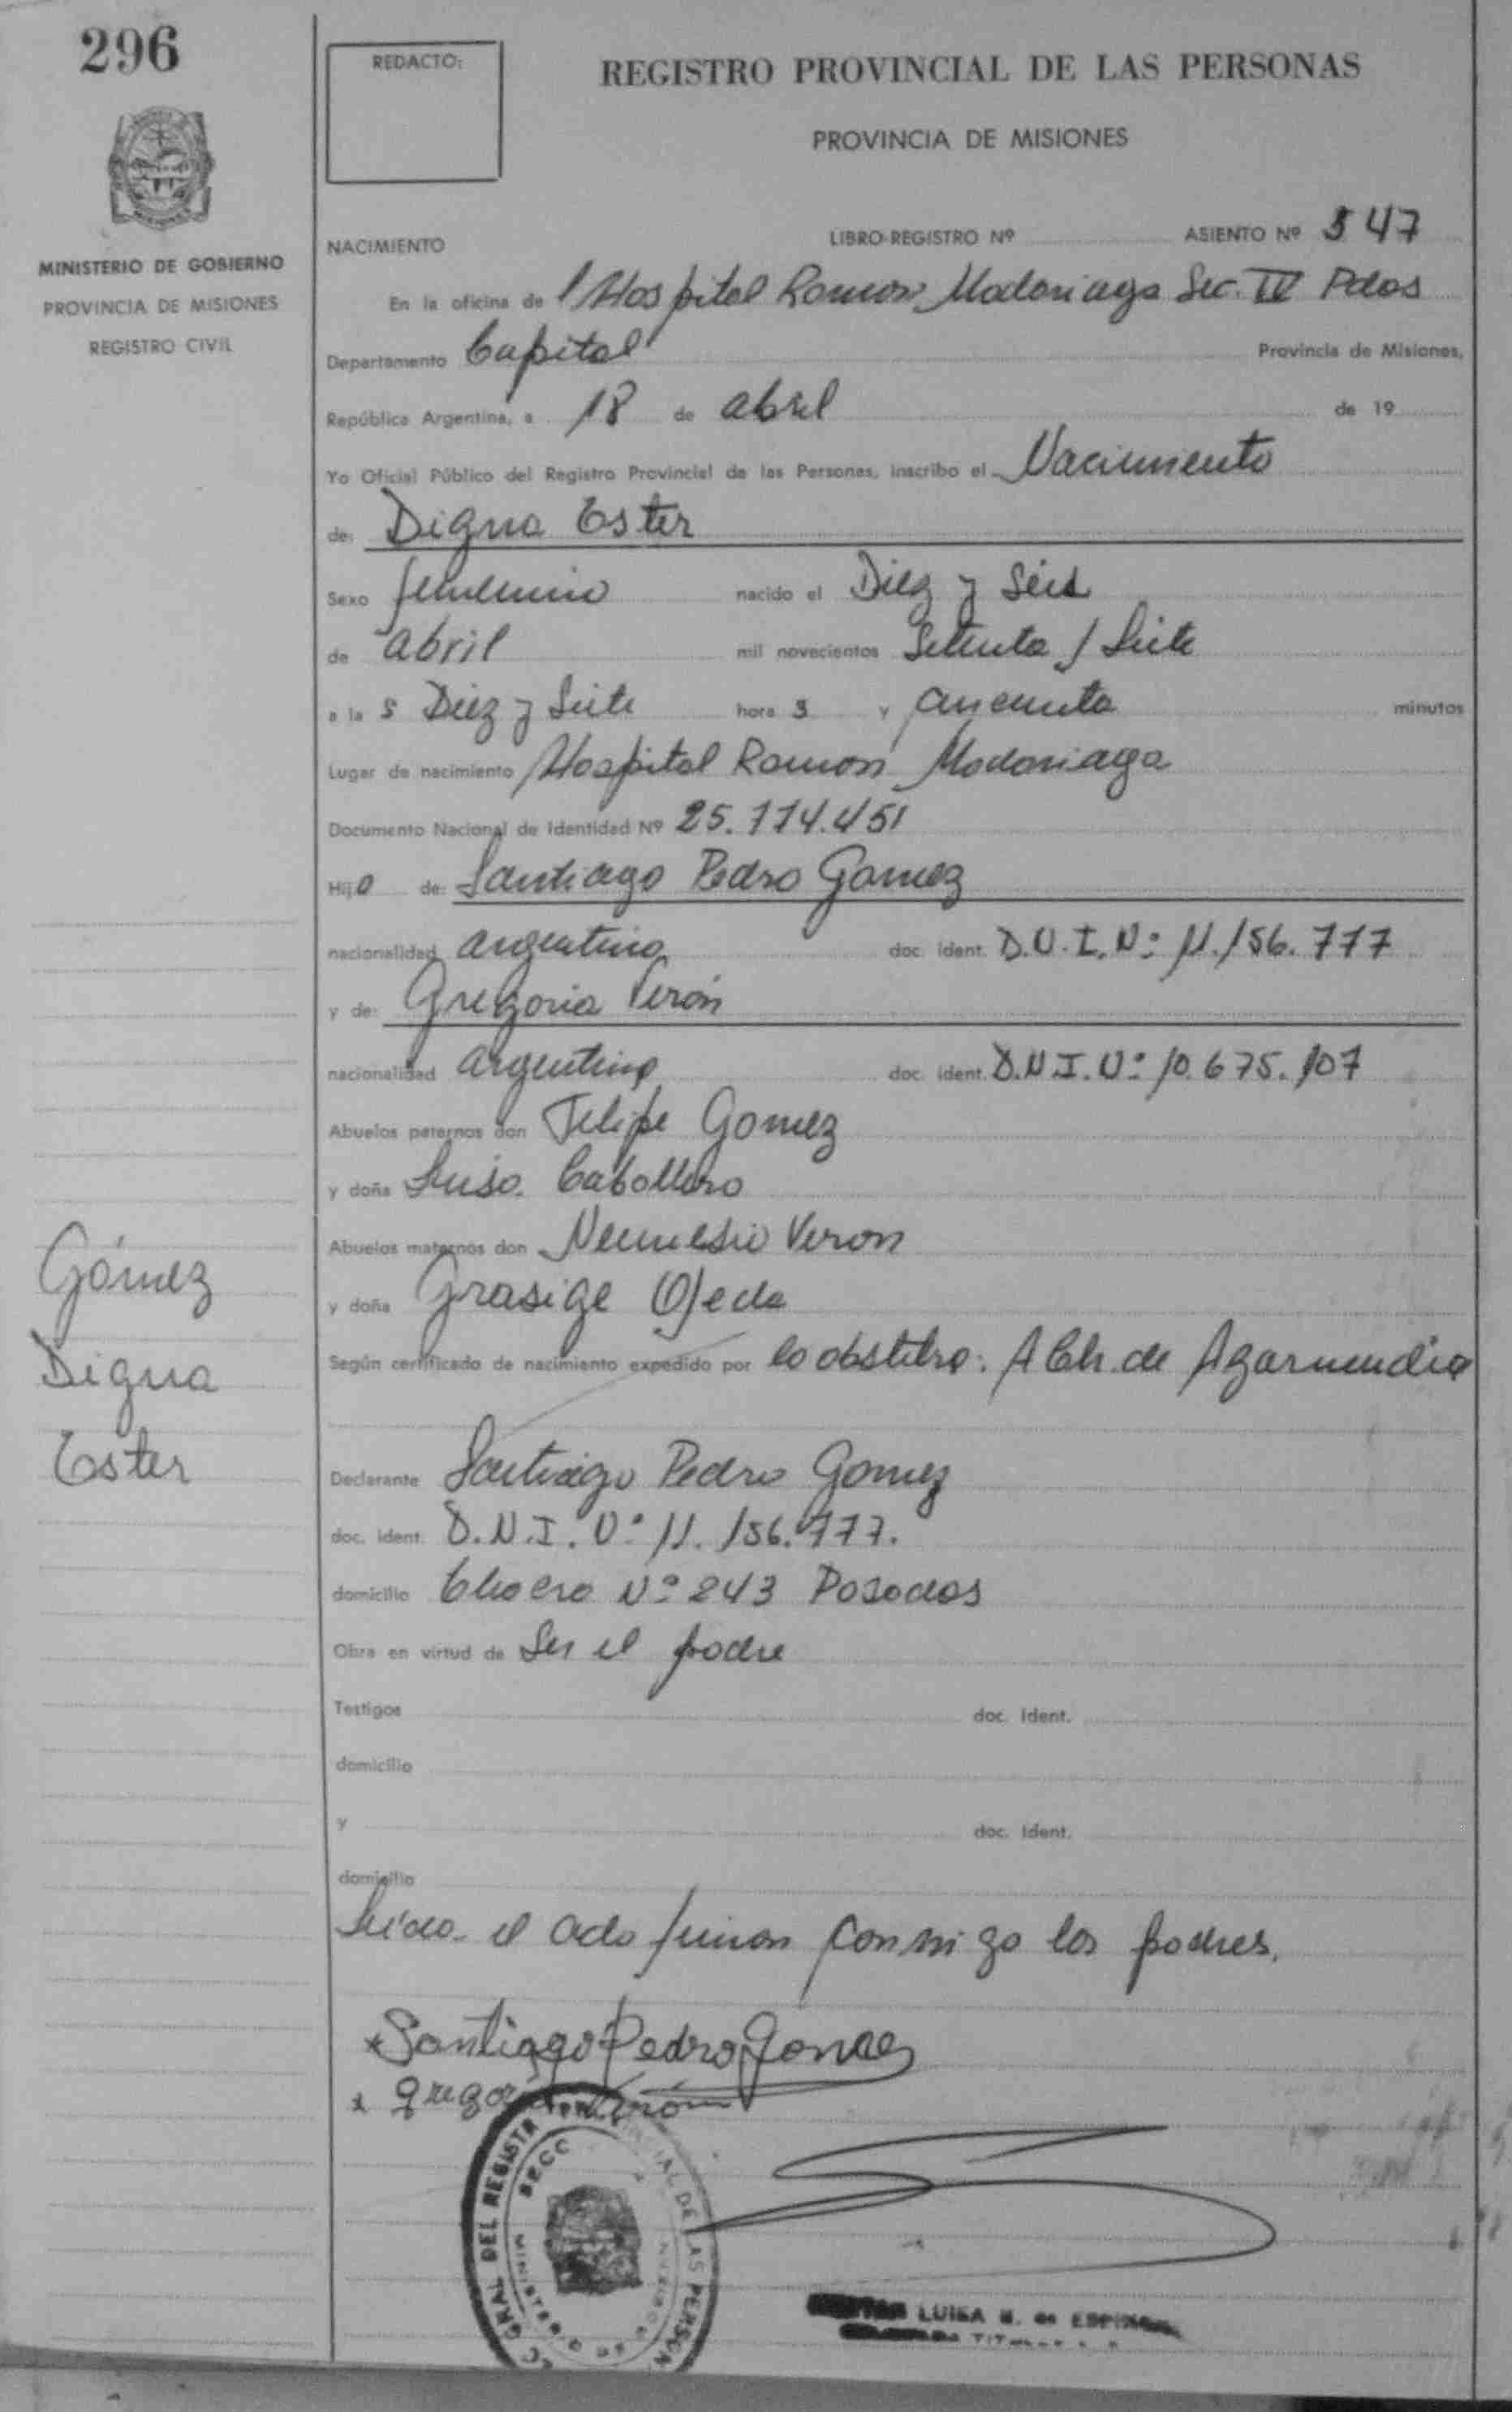 296
REDACTO:
REGISTRO PROVINCIAL DE LAS PERSONAS
PROVINCIA DE MISIONES
MINISTERIO DE GOBIERNO
PROVINCIA DE MISIONES
REGISTRO CIVIL
NACIMIENTO LIBRO-REGISTRO Nº ASIENTO Nº 547
En la oficina de l Hospital Ramon Madariaga Sec. IV Pdas
Departamento Capital Provincia de Misiones,
República Argentina, a 18 de abril de 19
Yo Oficial Público del Registro Provincial de las Personas, inscribo el Nacimiento
de: Digna Ester
Sexo femenino nacido el Diez y Seis
de abril mil novecientos Setenta / Siete
a la s Diez y Siete hora s y cincuenta minutos
Lugar de nacimiento Hospital Ramon Madariaga
Documento Nacional de Identidad Nº 25.774.451
Hij a de: Santiago Pedro Gomez
nacionalidad argentina doc. ident. D.N.I. Nº 11.156.777
y de: Gregoria Verón
nacionalidad argentina doc. ident. D.N.I. Nº 10.675.107
Abuelos paternos don Felipe Gomez
y doña Luisa Caballero
Abuelos maternos don Nemesio Veron
y doña Ojeda
Según certificado de nacimiento expedido por la obstetra: A Ch. de Agarmendia
Gómez
Digna
Ester
Declarante Santiago Pedro Gomez
doc. ident. D.N.I. Nº 11.156.777.
domicilio Nº 243 Posadas
Obra en virtud de Ser el padre
Testigos doc. ident.
domicilio
y doc. ident.
domicilio
Leida el acta firman conmigo los padres.
x Santiago Pedro Gomez
x gregoria Verón
GRAL DEL REGISTR PROVINCIAL DE LAS PERSON
SECC
LUISA